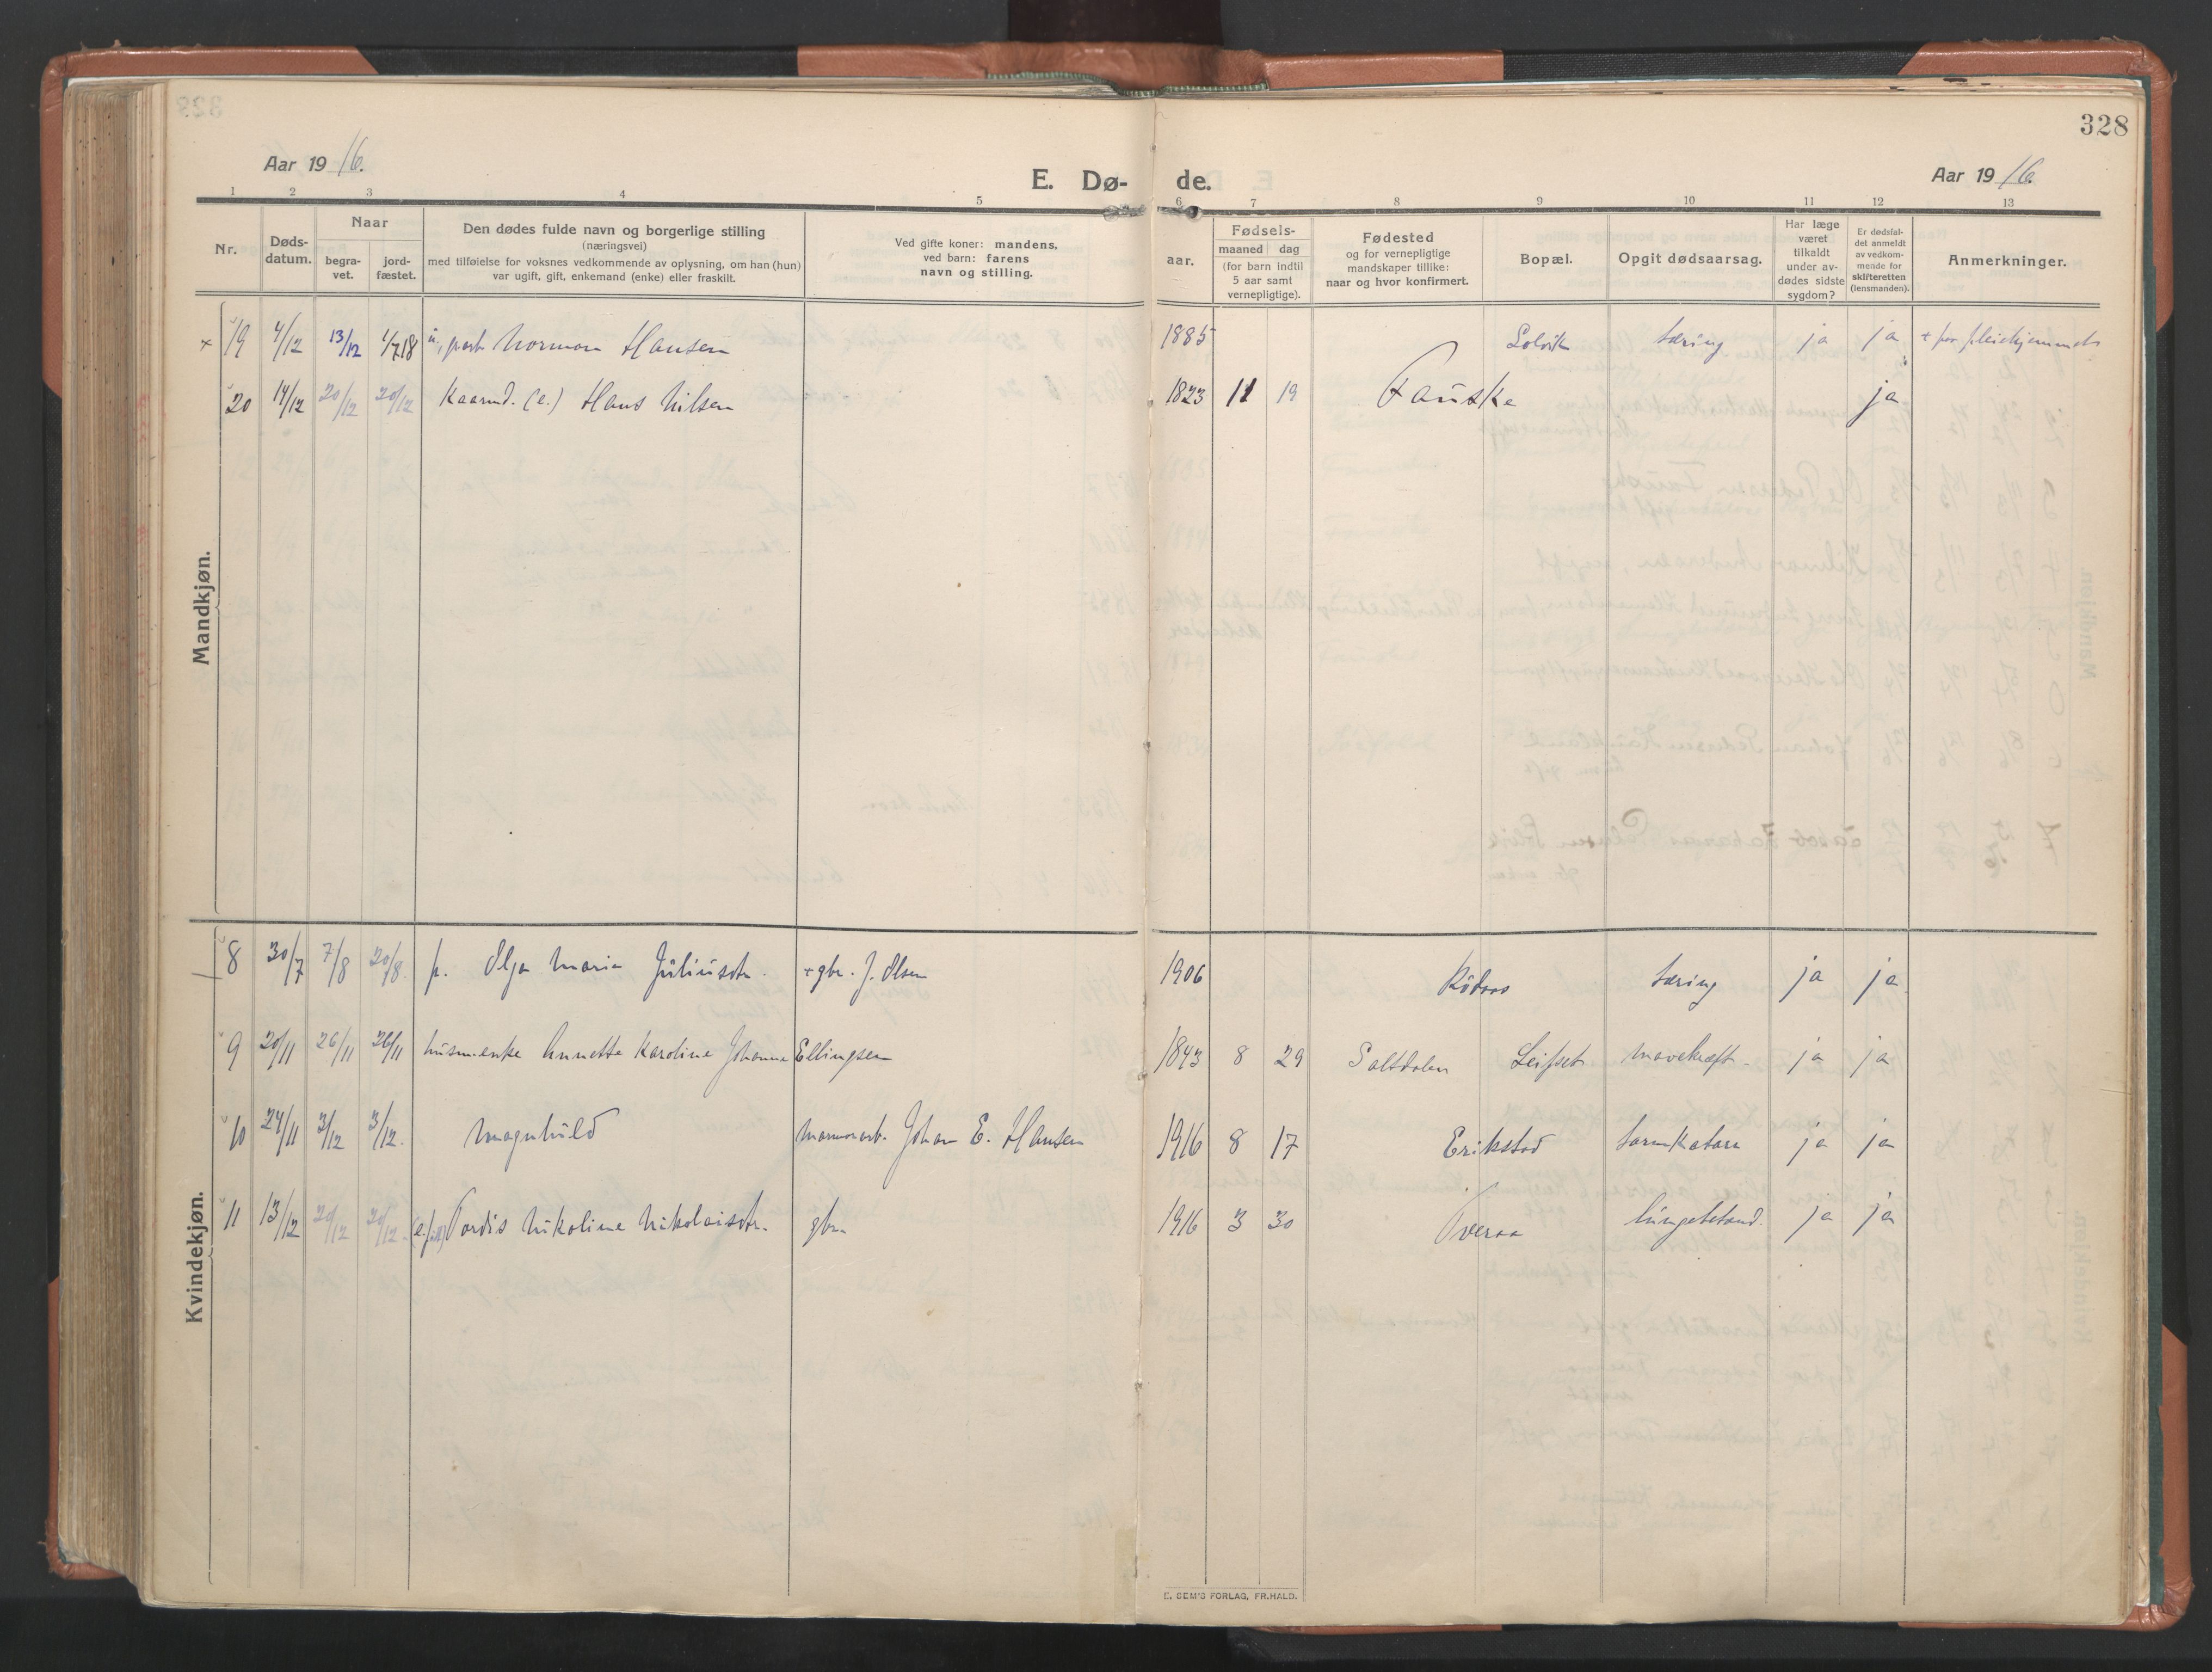 328
Aar 19 16.
E. Dø- de.
Aar 19 16.
1 2 3 4 5 6 7 8 9 10 11 12 13
Nr.
Døds-
datum.
Naar
begra-
vet.
jord-
fæstet.
Den dødes fulde navn og borgerlige stilling
(næringsvei)
med tilføielse for voksnes vedkommende av oplysning, om han (hun)
var ugift, gift, enkemand (enke) eller fraskilt.
Ved gifte koner: mandens.
ved barn: farens
navn og stilling.
aar.
Fødsels-
maaned dag
(for barn indtil
5 aar samt
vernepligtige).
Fødested
og for vernepligtige
mandskaper tillike:
naar og hvor konfirmert.
Bopæl.
Opgit dødsaarsag.
Har læge
været
tilkaldt
under av-
dødes sidste
sygdom?
Er dødsfal-
det anmeldt
av vedkom-
mende for
skifteretten
(lensmanden).
Anmerkninger.
Mandkjøn.
+ 19 4/12 13/12 1/7 18 Norman Hansen 1885 Lolvik tæring ja ja + paa pleiehjemmet
20 14/12 20/12 20/12 Kaarmd. (e.) Hans Nilsen 1823 11 19 Fauske ja
Kvindekjøn.
8 30/7 7/8 20/8. p. Olga Maria Juliusdtr. + gbr. J. Olsen 1906 Rödaas tæring ja ja
9 20/11 26/11 26/11 husm.enke Annette Karoline Johanna Ellingsen 1843 8 29 Saltdalen Leifset mavekræft. ja ja
10 24/11 3/12 3/12. Magnhild marmorarb. Johan E. Hansen 1916 8 17 Erikstad tarmkatarr ja ja
11 13/12 20/12 20/12. Tordis Nikoline Nikolaisdtr. gbr. 1916 3 30 Tveraa lungebetænd. ja ja
E. SEM'S FORLAG, FR.HALD.